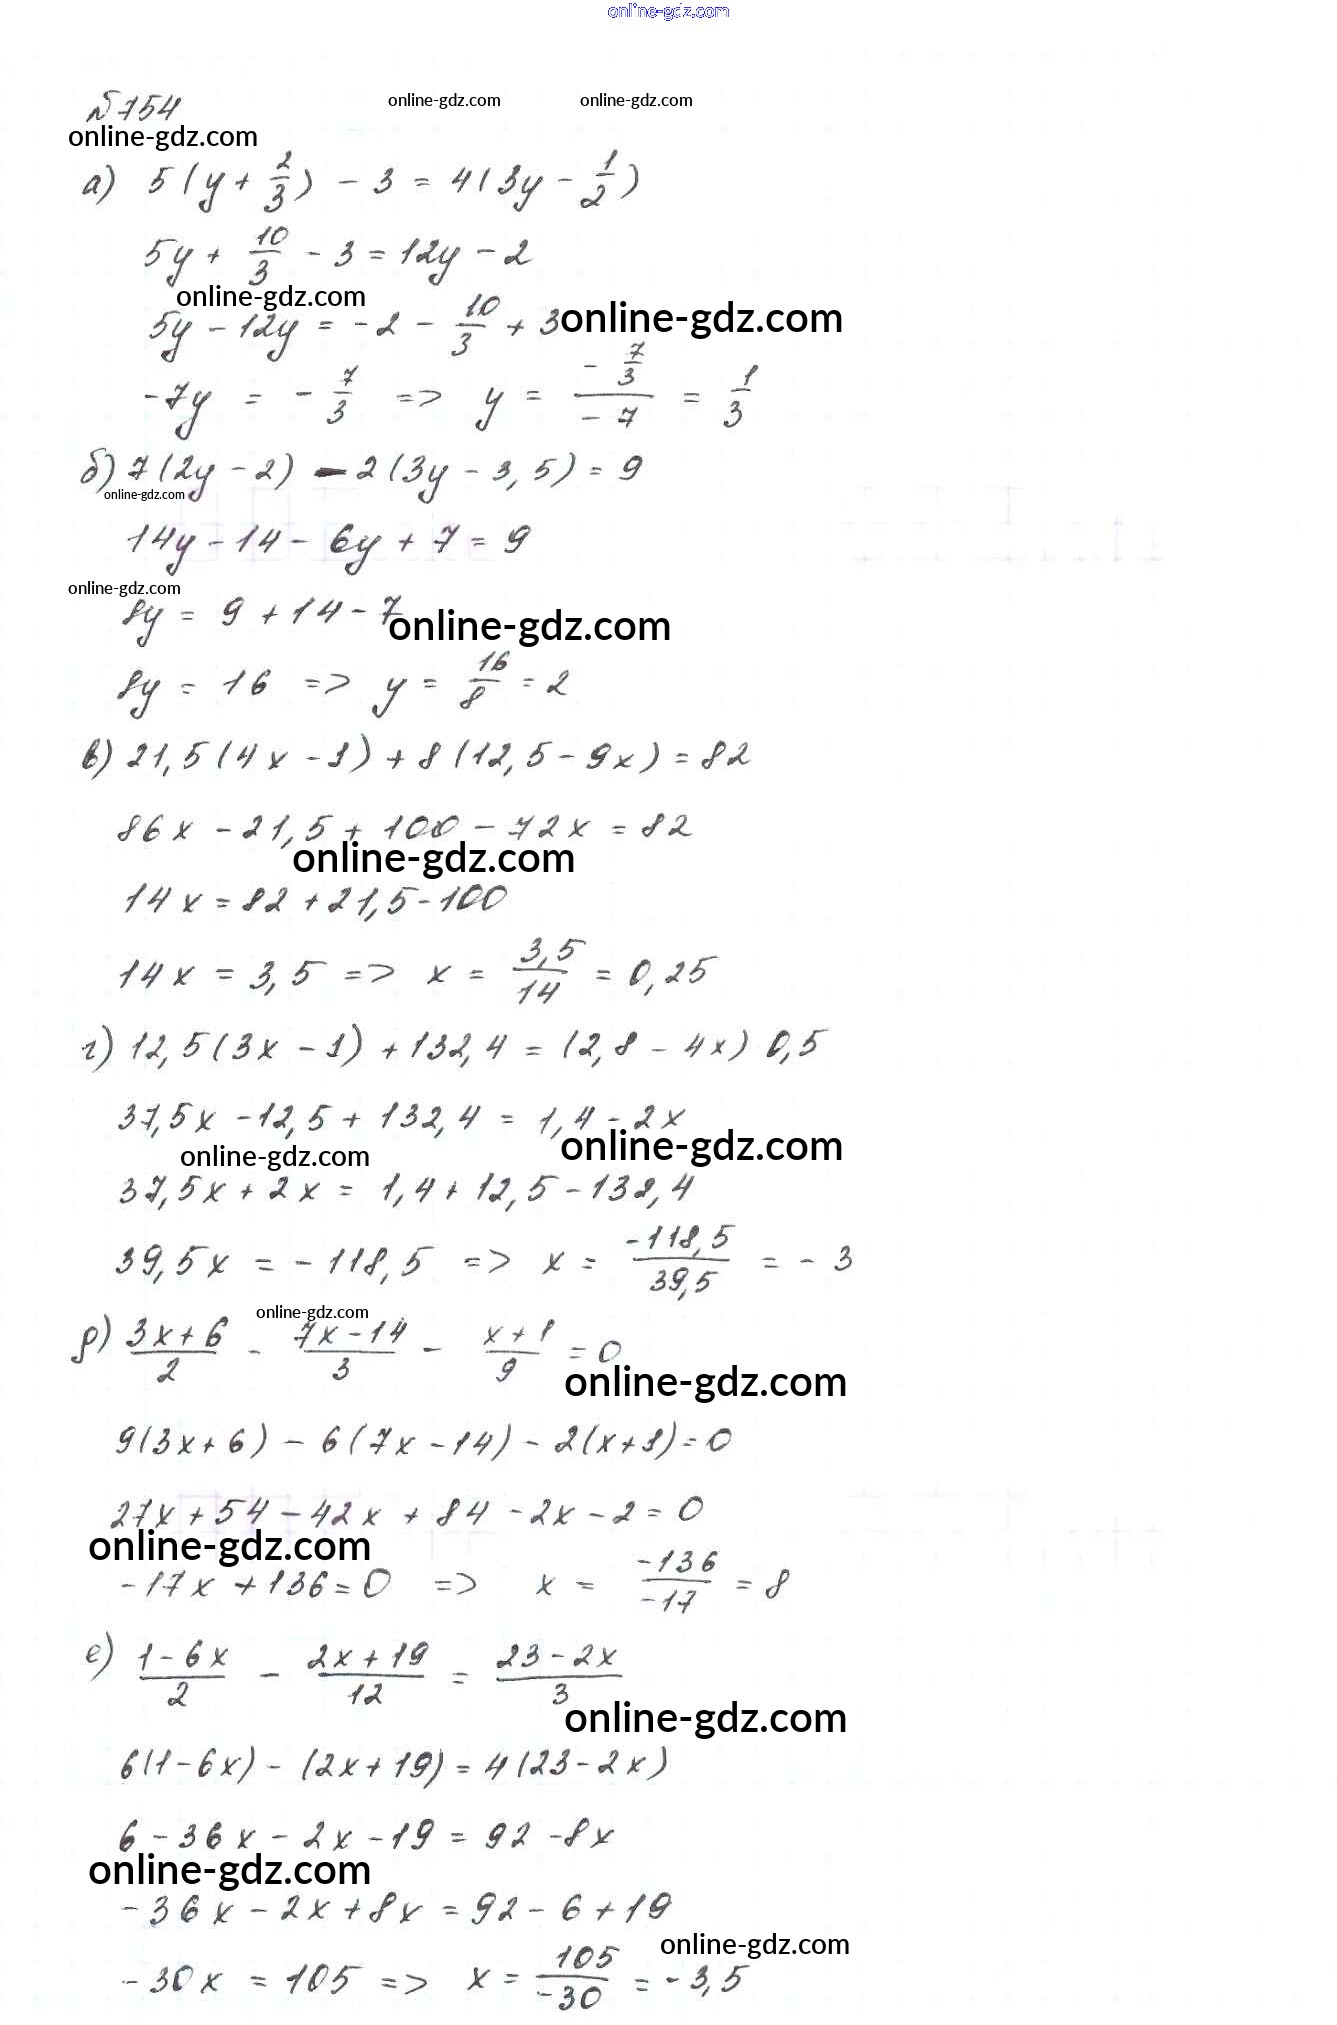 online-gdz.com
№754
online-gdz.com online-gdz.com
online-gdz.com
а) 5(y + 2/3) - 3 = 4(3y - 1/2)
5y + 10/3 - 3 = 12y - 2
online-gdz.com
5y - 12y = -2 - 10/3 + 3
online-gdz.com
-7y = - 7/3 => y = (- 7/3)/(- 7) = 1/3
б) 7(2y - 2) - 2(3y - 3,5) = 9
online-gdz.com
14y - 14 - 6y + 7 = 9
online-gdz.com
8y = 9 + 14 - 7
online-gdz.com
8y = 16 => y = 16/8 = 2
в) 21,5(4x - 1) + 8(12,5 - 9x) = 82
86x - 21,5 + 100 - 72x = 82
online-gdz.com
14x = 82 + 21,5 - 100
14x = 3,5 => x = 3,5/14 = 0,25
г) 12,5(3x - 1) + 132,4 = (2,8 - 4x) 0,5
37,5x - 12,5 + 132,4 = 1,4 - 2x
online-gdz.com
online-gdz.com
37,5x + 2x = 1,4 + 12,5 - 132,4
39,5x = - 118,5 => x = -118,5/39,5 = - 3
online-gdz.com
д) (3x + 6)/2 - (7x - 14)/3 - (x + 1)/9 = 0
online-gdz.com
9(3x + 6) - 6(7x - 14) - 2(x + 1) = 0
27x + 54 - 42x + 84 - 2x - 2 = 0
online-gdz.com
-17x + 136 = 0 => x = -136/-17 = 8
е) (1 - 6x)/2 - (2x + 19)/12 = (23 - 2x)/3
online-gdz.com
6(1 - 6x) - (2x + 19) = 4(23 - 2x)
6 - 36x - 2x - 19 = 92 - 8x
online-gdz.com
-36x - 2x + 8x = 92 - 6 + 19
online-gdz.com
-30x = 105 => x = 105/-30 = -3,5